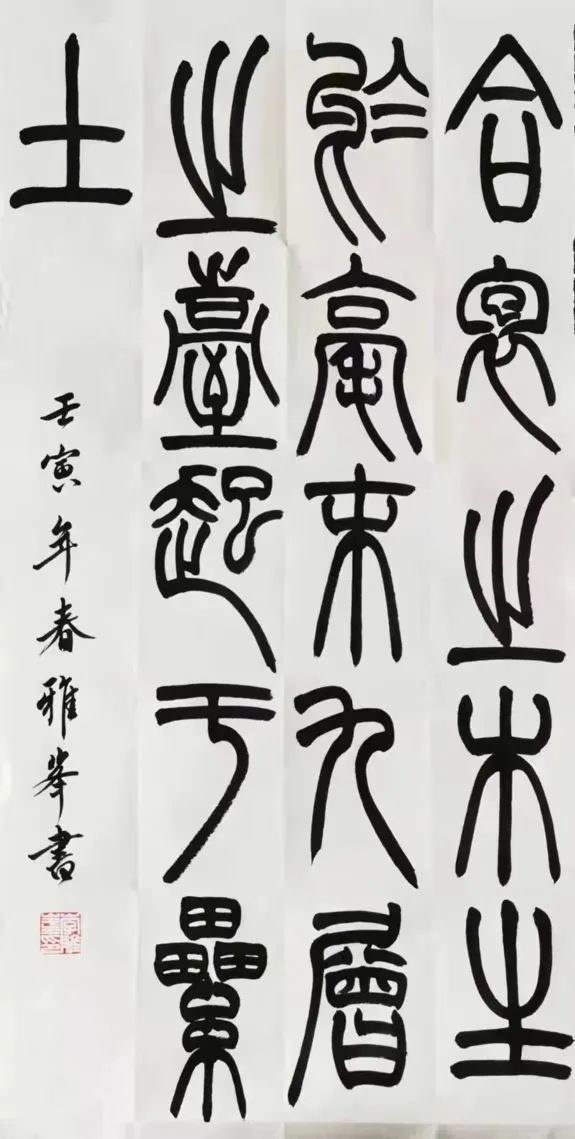 合抱之木生
於毫末九層
之臺起于纍
土
壬寅年春雅峯書